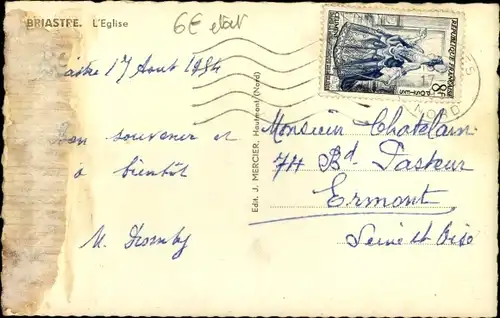 BRIASTRE. L'Eglise
6€
17 Août 1954
Bon souvenir et
à bientôt
M.
Edit. J. MERCIER, Hautmont (Nord)
REPUBLIQUE FRANÇAISE
8F
17
NORD
Monsieur Chatelain
74 Bd Pasteur
Ermont
Seine et Oise